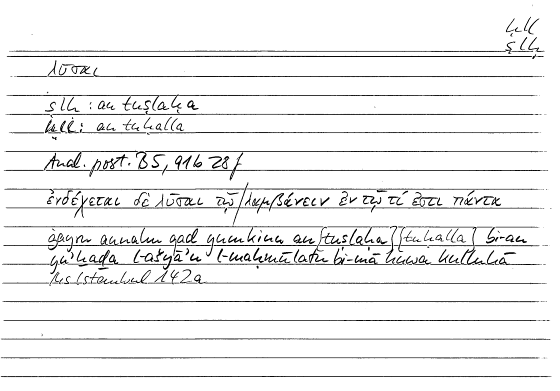 ḥll
ṣlḥ
λῦσαι
ṣlḥ : an tuṣlaḥa
ḥll : an tuḥalla
Anal. post. B5, 91b 28f
ἐνδέχεται δὲ λῦσαι τῷ/λαμβάνειν ἐν τῷ τί ἐστι πάντα
annahu qad yumkinu an {tuṣlaḥa} {tuḥalla} bi-an
yu'ḫaḏa l-ašyā'u l-maḥmūlatu bi-mā huwa kulluhā
Ms Istanbul 142a